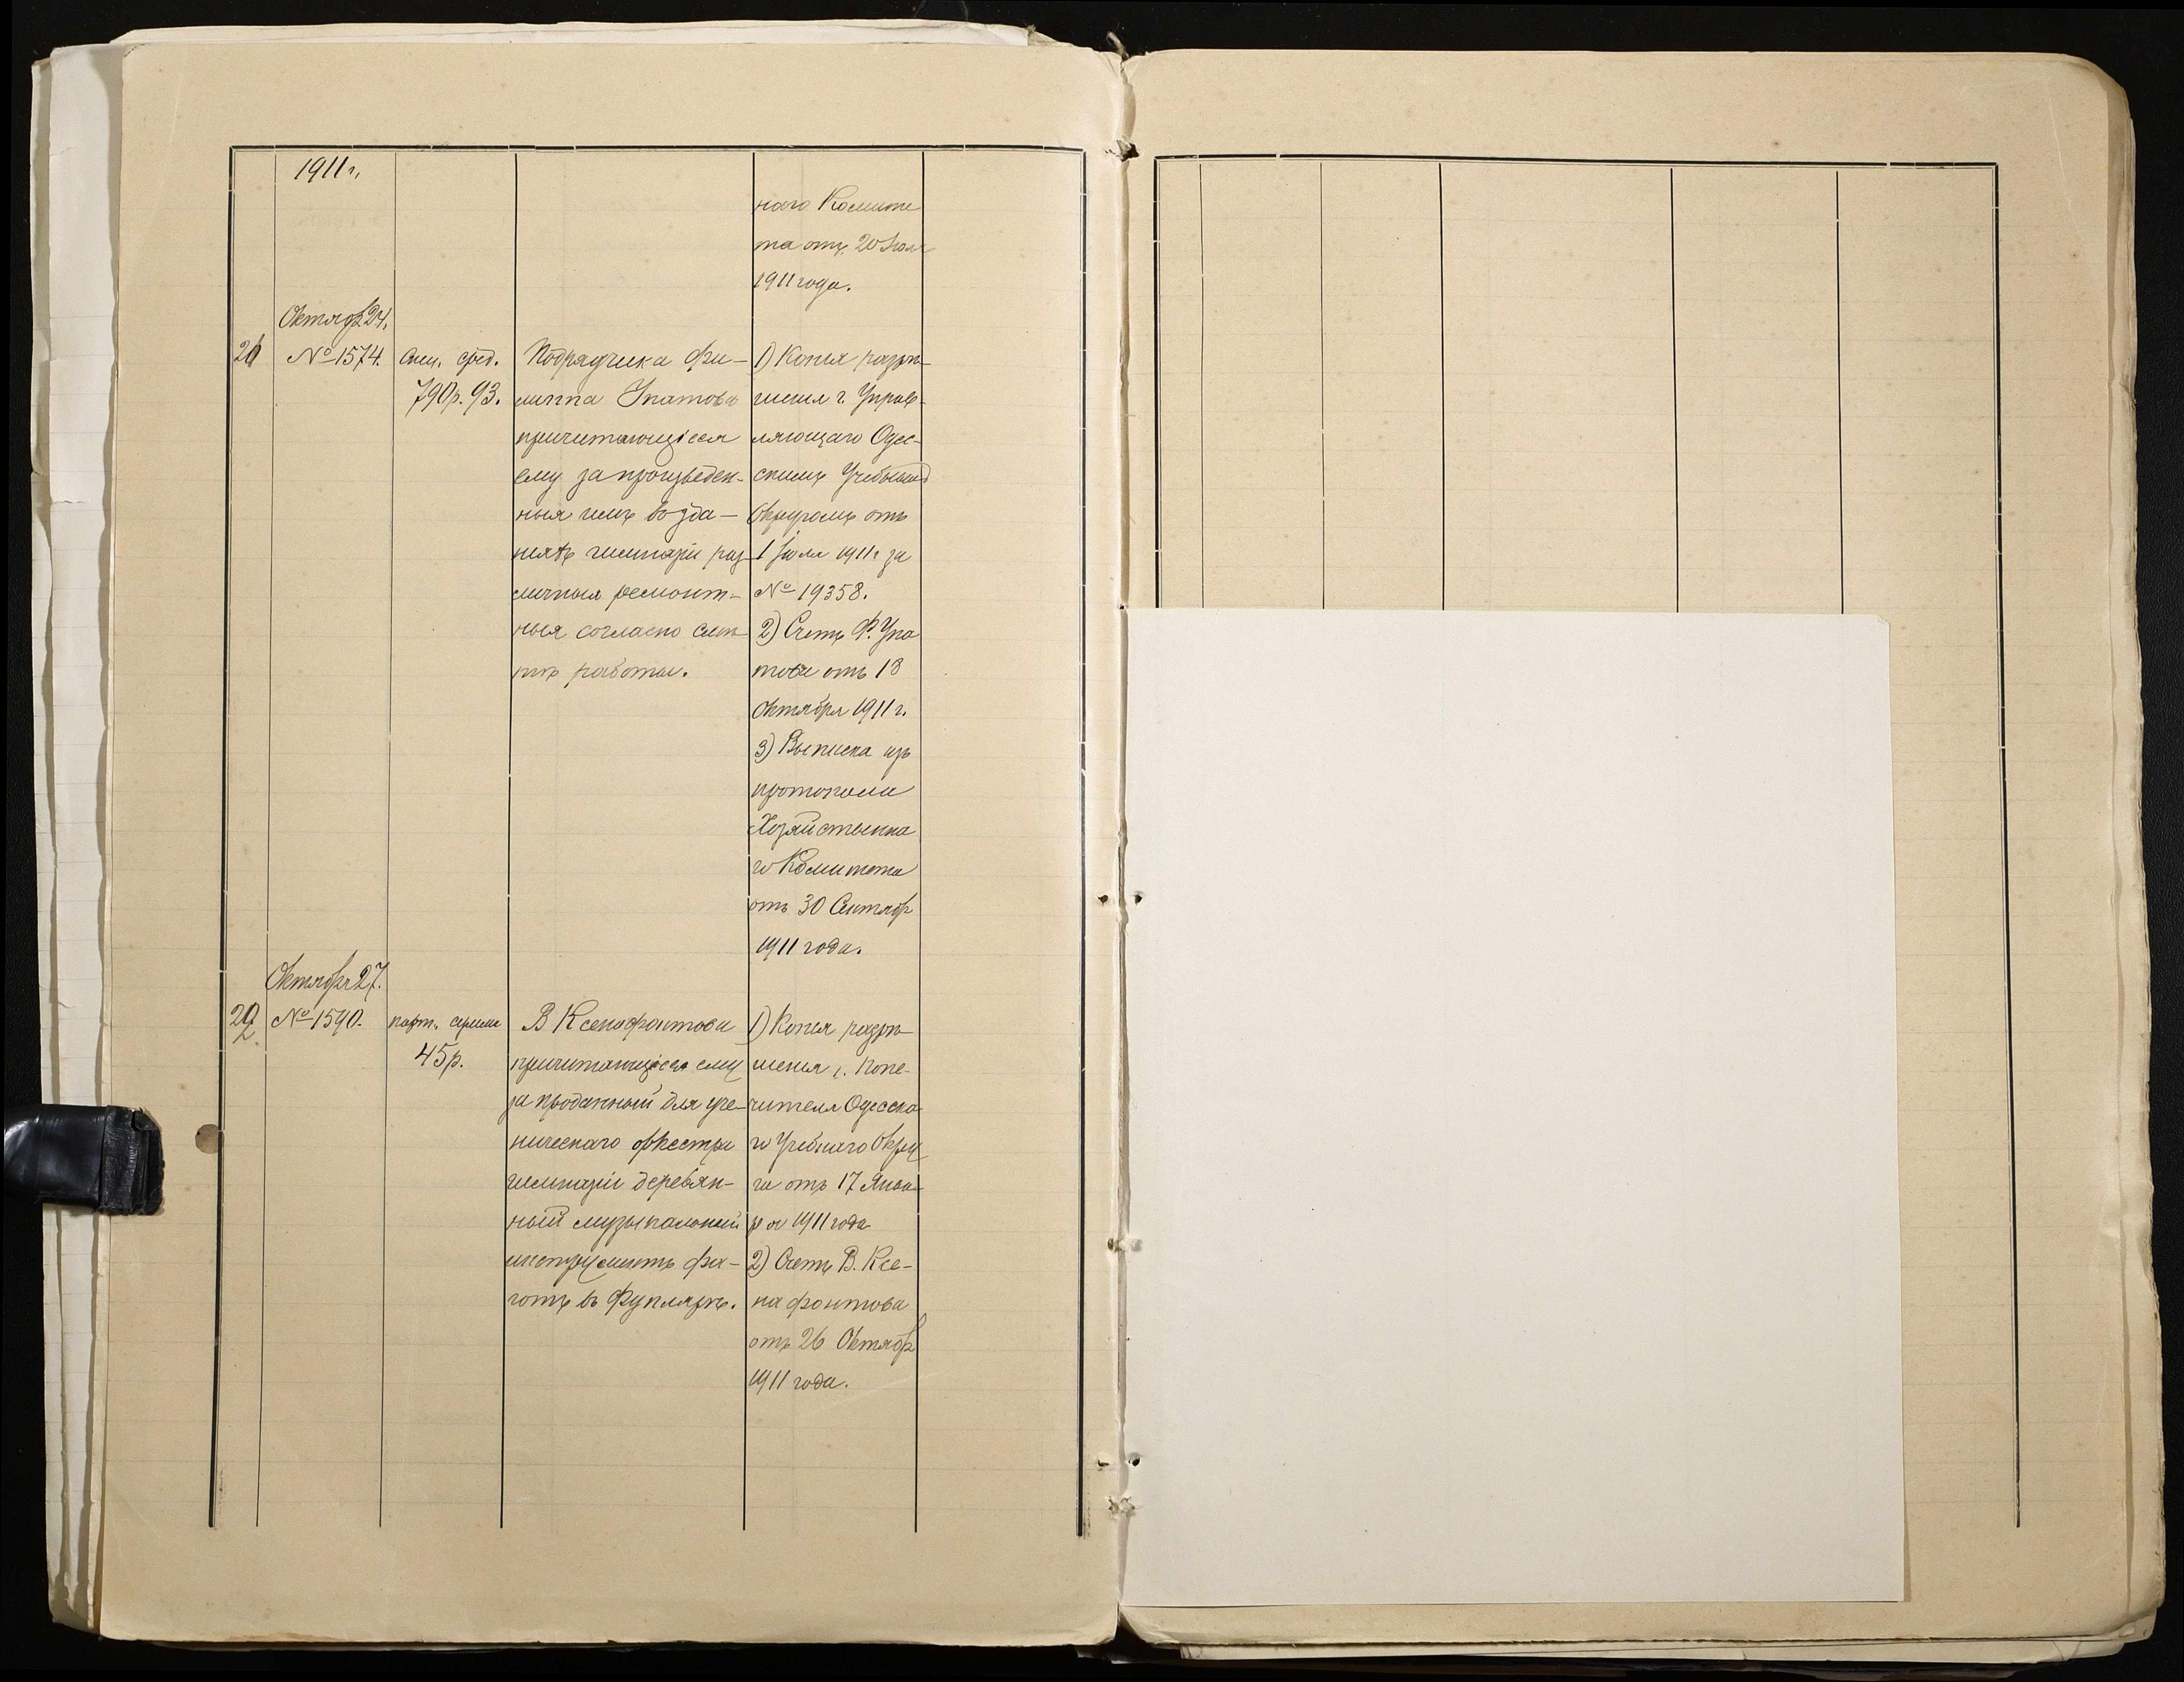 1911 г.
наго Комите
та отъ 20 Іюля
1911 года.
Октябр 24.
26 № 1574. Спец. сред. 790 р. 93.
Подрядчика Фи-
липпа Упатова
причитающіеся
ему за произведен-
ныя имъ въ зда-
ніяхъ гимназіи раз
личныя ремонт-
ныя согласно смѣ
тѣ работы.
1) Копія разрѣ-
шенія г. Управ-
ляющаго Одес-
скимъ Учебнымъ
Округомъ отъ
1 Іюля 1911 г за
№ 19358.
2) Счетъ Ф. Упа
това отъ 18
Октября 1911 г.
3) Выписка изъ
протокола
Хозяйственна
го Комитета
отъ 30 Сентябр
1911 года.
Октября 27.
№ 1590.
45 р.
В Ксенофонтова
причитающіеся ему
за проданный для уче-
ническаго оркестра
гимназіи деревян-
ный музыкальный
инструментъ фа-
готъ въ футлярѣ.
1) Копія разрѣ
шенія г. Попе-
чителя Одесска
го Учебнаго Окру
га отъ 17 Янва-
ря 1911 года
2) Счетъ В. Ксе-
нафонтова
отъ 26 Октябр
1911 года.